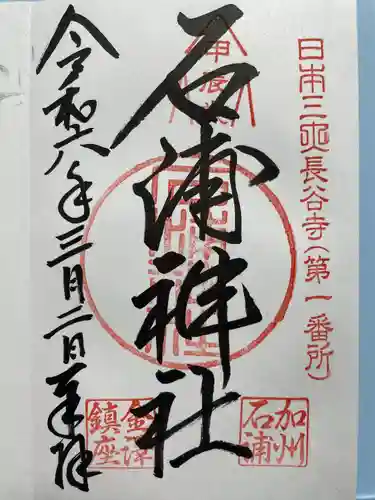 日本三所長谷寺(第一番所)
甲辰
石浦神社
加州
石浦
金澤
鎮座
令和六年三月二日奉拝